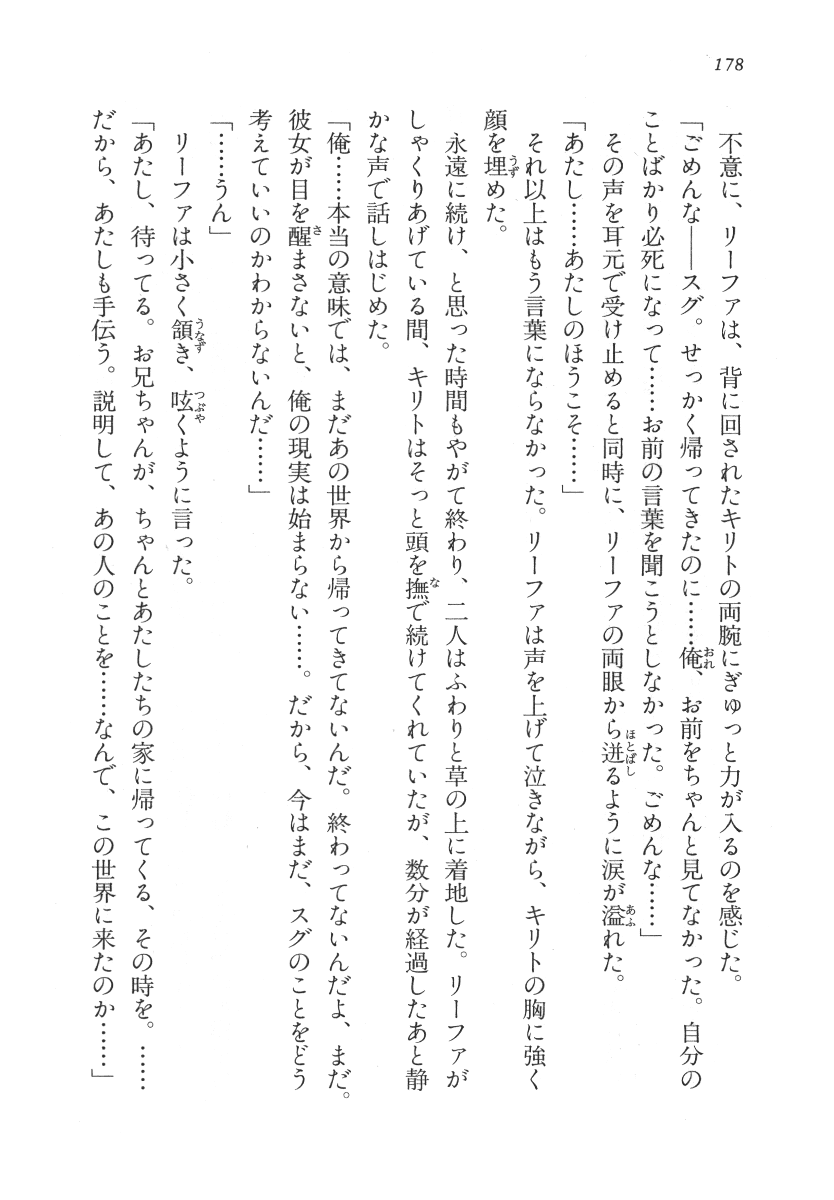 178
不意に、リーファは、背に回されたキリトの両腕にぎゅっと力が入るのを感じた。
「ごめんな――スグ。せっかく帰ってきたのに……俺、お前をちゃんと見てなかった。自分の
ことばかり必死になって……お前の言葉を聞こうとしなかった。ごめんな……」
その声を耳元で受け止めると同時に、リーファの両眼から迸るように涙が溢れた。
「あたし……あたしのほうこそ……」
それ以上はもう言葉にならなかった。リーファは声を上げて泣きながら、キリトの胸に強く
顔を埋めた。
永遠に続け、と思った時間もやがて終わり、二人はふわりと草の上に着地した。リーファが
しゃくりあげている間、キリトはそっと頭を撫で続けてくれていたが、数分が経過したあと静
かな声で話しはじめた。
「俺……本当の意味では、まだあの世界から帰ってきてないんだ。終わってないんだよ、まだ。
彼女が目を醒まさないと、俺の現実は始まらない……。だから、今はまだ、スグのことをどう
考えていいのかわからないんだ……」
「……うん」
リーファは小さく頷き、呟くように言った。
「あたし、待ってる。お兄ちゃんが、ちゃんとあたしたちの家に帰ってくる、その時を。……
だから、あたしも手伝う。説明して、あの人のことを……なんで、この世界に来たのか……」